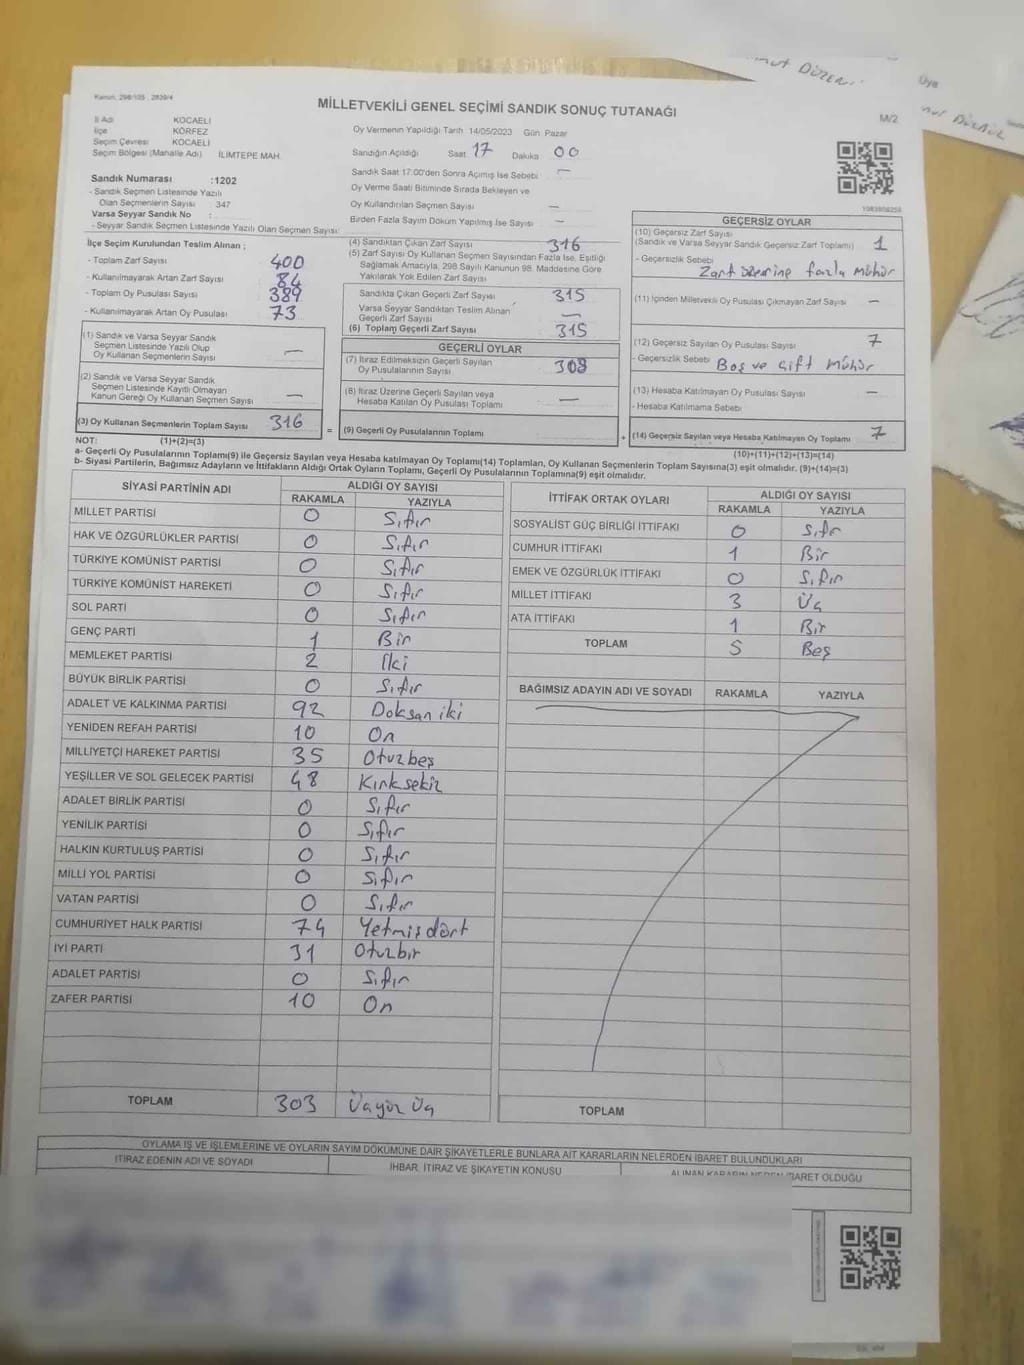 Kanun: 298/105 , 2839/4
MİLLETVEKİLİ GENEL SEÇİMİ SANDIK SONUÇ TUTANAĞI
M/2
İl Adı KOCAELİ
İlçe KÖRFEZ
Seçim Çevresi KOCAELİ
Seçim Bölgesi (Mahalle Adı) İLİMTEPE MAH.
Sandık Numarası :1202
- Sandık Seçmen Listesinde Yazılı
Olan Seçmenlerin Sayısı : 347
Varsa Seyyar Sandık No :
- Seyyar Sandık Seçmen Listesinde Yazılı Olan Seçmen Sayısı:
Oy Vermenin Yapıldığı Tarih 14/05/2023 Gün: Pazar
Sandığın Açıldığı Saat 17 Dakika 00
Sandık Saat 17:00'den Sonra Açımış İse Sebebi —
Oy Verme Saati Bitiminde Sırada Bekleyen ve
Oy Kullandırılan Seçmen Sayısı —
Birden Fazla Sayım Döküm Yapılmış İse Sayısı —
İlçe Seçim Kurulundan Teslim Alınan ;
- Toplam Zarf Sayısı 400
- Kullanılmayarak Artan Zarf Sayısı 84
- Toplam Oy Pusulası Sayısı 389
- Kullanılmayarak Artan Oy Pusulası 73
(1) Sandık ve Varsa Seyyar Sandık
Seçmen Listesinde Yazılı Olup
Oy Kullanan Seçmenlerin Sayısı —
(2) Sandık ve Varsa Seyyar Sandık
Seçmen Listesinde Kayıtlı Olmayan
Kanun Gereği Oy Kullanan Seçmen Sayısı —
(3) Oy Kullanan Seçmenlerin Toplam Sayısı 316
(4) Sandıktan Çıkan Zarf Sayısı 316
(5) Zarf Sayısı Oy Kullanan Seçmen Sayısından Fazla İse, Eşitliği
Sağlamak Amacıyla, 298 Sayılı Kanunun 98. Maddesine Göre
Yakılarak Yok Edilen Zarf Sayısı
Sandıkta Çıkan Geçerli Zarf Sayısı 315
Varsa Seyyar Sandıktan Teslim Alınan
Geçerli Zarf Sayısı —
(6) Toplam Geçerli Zarf Sayısı 315
GEÇERLİ OYLAR
(7) İtiraz Edilmeksizin Geçerli Sayılan
Oy Pusulalarının Sayısı 308
(8) İtiraz Üzerine Geçerli Sayılan veya
Hesaba Katılan Oy Pusulası Toplamı —
= (9) Geçerli Oy Pusulalarının Toplamı
GEÇERSİZ OYLAR
(10) Geçersiz Zarf Sayısı
(Sandık ve Varsa Seyyar Sandık Geçersiz Zarf Toplamı) 1
- Geçersizlik Sebebi
Zarf üzerine fazla mühür
(11) İçinden Milletvekili Oy Pusulası Çıkmayan Zarf Sayısı —
(12) Geçersiz Sayılan Oy Pusulası Sayısı 7
- Geçersizlik Sebebi Boş ve Çift Mühür
(13) Hesaba Katılmayan Oy Pusulası Sayısı —
- Hesaba Katılmama Sebebi
+ (14) Geçersiz Sayılan veya Hesaba Katılmayan Oy Toplamı 7
NOT: (1)+(2)=(3)
(10)+(11)+(12)+(13)=(14)
a- Geçerli Oy Pusulalarının Toplamı(9) ile Geçersiz Sayılan veya Hesaba Katılmayan Oy Toplamı(14) Toplamları, Oy Kullanan Seçmenlerin Toplam Sayısına(3) eşit olmalıdır. (9)+(14)=(3)
b- Siyasi Partilerin, Bağımsız Adayların ve İttifakların Aldığı Ortak Oyların Toplamı, Geçerli Oy Pusulalarının Toplamına(9) eşit olmalıdır.
SİYASİ PARTİNİN ADI ALDIĞI OY SAYISI
RAKAMLA YAZIYLA
MİLLET PARTİSİ 0 Sıfır
HAK VE ÖZGÜRLÜKLER PARTİSİ 0 Sıfır
TÜRKİYE KOMÜNİST PARTİSİ 0 Sıfır
TÜRKİYE KOMÜNİST HAREKETİ 0 Sıfır
SOL PARTİ 0 Sıfır
GENÇ PARTİ 1 Bir
MEMLEKET PARTİSİ 2 İki
BÜYÜK BİRLİK PARTİSİ 0 Sıfır
ADALET VE KALKINMA PARTİSİ 92 Doksan iki
YENİDEN REFAH PARTİSİ 10 On
MİLLİYETÇİ HAREKET PARTİSİ 35 Otuzbeş
YEŞİLLER VE SOL GELECEK PARTİSİ 48 Kırksekiz
ADALET BİRLİK PARTİSİ 0 Sıfır
YENİLİK PARTİSİ 0 Sıfır
HALKIN KURTULUŞ PARTİSİ 0 Sıfır
MİLLİ YOL PARTİSİ 0 Sıfır
VATAN PARTİSİ 0 Sıfır
CUMHURİYET HALK PARTİSİ 74 Yetmiş dört
İYİ PARTİ 31 Otuzbir
ADALET PARTİSİ 0 Sıfır
ZAFER PARTİSİ 10 On
TOPLAM 303 Üçyüz Üç
İTTİFAK ORTAK OYLARI ALDIĞI OY SAYISI
RAKAMLA YAZIYLA
SOSYALİST GÜÇ BİRLİĞİ İTTİFAKI 0 Sıfır
CUMHUR İTTİFAKI 1 Bir
EMEK VE ÖZGÜRLÜK İTTİFAKI 0 Sıfır
MİLLET İTTİFAKI 3 Üç
ATA İTTİFAKI 1 Bir
TOPLAM 5 Beş
BAĞIMSIZ ADAYIN ADI VE SOYADI RAKAMLA YAZIYLA
TOPLAM
OYLAMA İŞ VE İŞLEMLERİNE VE OYLARIN SAYIM DÖKÜMÜNE DAİR ŞİKAYETLERLE BUNLARA AİT KARARLARIN NELERDEN İBARET BULUNDUKLARI
İTİRAZ EDENİN ADI VE SOYADI İHBAR, İTİRAZ VE ŞİKAYETİN KONUSU ALINAN KARARIN NEDEN İBARET OLDUĞU